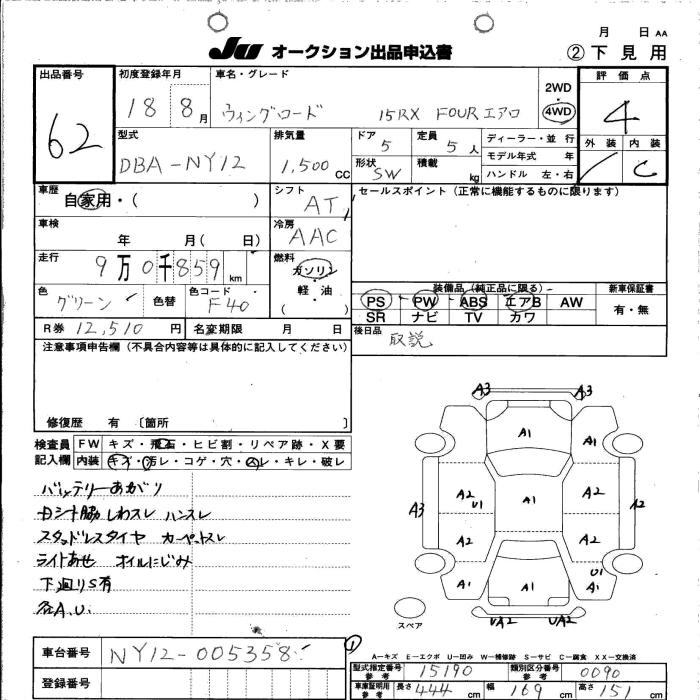 JU オークション出品申込書
月 日 AA
② 下見用
出品番号 62
初度登録年月 18 8月
車名・グレード ウィングロード 15RX FOUR エアロ
2WD
・
4WD
評価点 4
外装 内装 C
型式 DBA-NY12
排気量 1,500 CC
ドア 5
定員 5人
形状 SW
積載 kg
ディーラー・並行
モデル年式 年
ハンドル 左・右
車歴 自家用・( )
シフト AT
セールスポイント(正常に機能するものに限ります)
車検 年 月( 日)
冷房 AAC
走行 9万0千859 km
燃料 ガソリン・軽・油 ( )
色 グリーン 色替
色コード F40
装備品(純正品に限る)
PS PW ABS エアB AW
SR ナビ TV カワ
新車保証書
有・無
R券 12,510 円
名変期限 月 日
後日品 取説
注意事項申告欄(不具合内容等は具体的に記入してください)
修復歴 有 〔箇所 〕
検査員 FW キズ・飛石・ヒビ割・リペア跡・X要
記入欄 内装 キズ・汚レ・コゲ・穴・スレ・キレ・破レ
バッテリーあがり
Dシート脇しわスレ ハンスレ
スタッドレスタイヤ カーペットスレ
ライトあせ オイルにじみ
下廻りS有
各A.U.
A3 A3
A1 A1
A3 A2 U1 A1 A2 A2
A2 A2
A1 A1 U1 A1
スペア
UA2 UA2
A-キズ E-エクボ U-凹み W-補修跡 S-サビ C-腐食 XX-交換済
車台番号 NY12-005358
①
型式指定番号 参考 15190
類別区分番号 参考 0090
登録番号
車庫証明用 参考
長さ 444 cm 幅 169 cm 高さ 15 cm